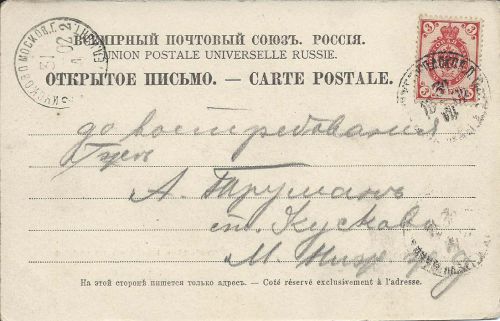 ВСЕМІРНЫЙ ПОЧТОВЫЙ СОЮЗЪ. РОССІЯ.
UNION POSTALE UNIVERSELLE RUSSIE.
ОТКРЫТОЕ ПИСЬМО. — CARTE POSTALE.
3 3
3 3
до востребованія
А. Труманъ
ст. Кусково
М. Ниж. ж. д.
На этой сторонѣ пишется только адресъ. — Coté réservé exclusivement à l'adresse.